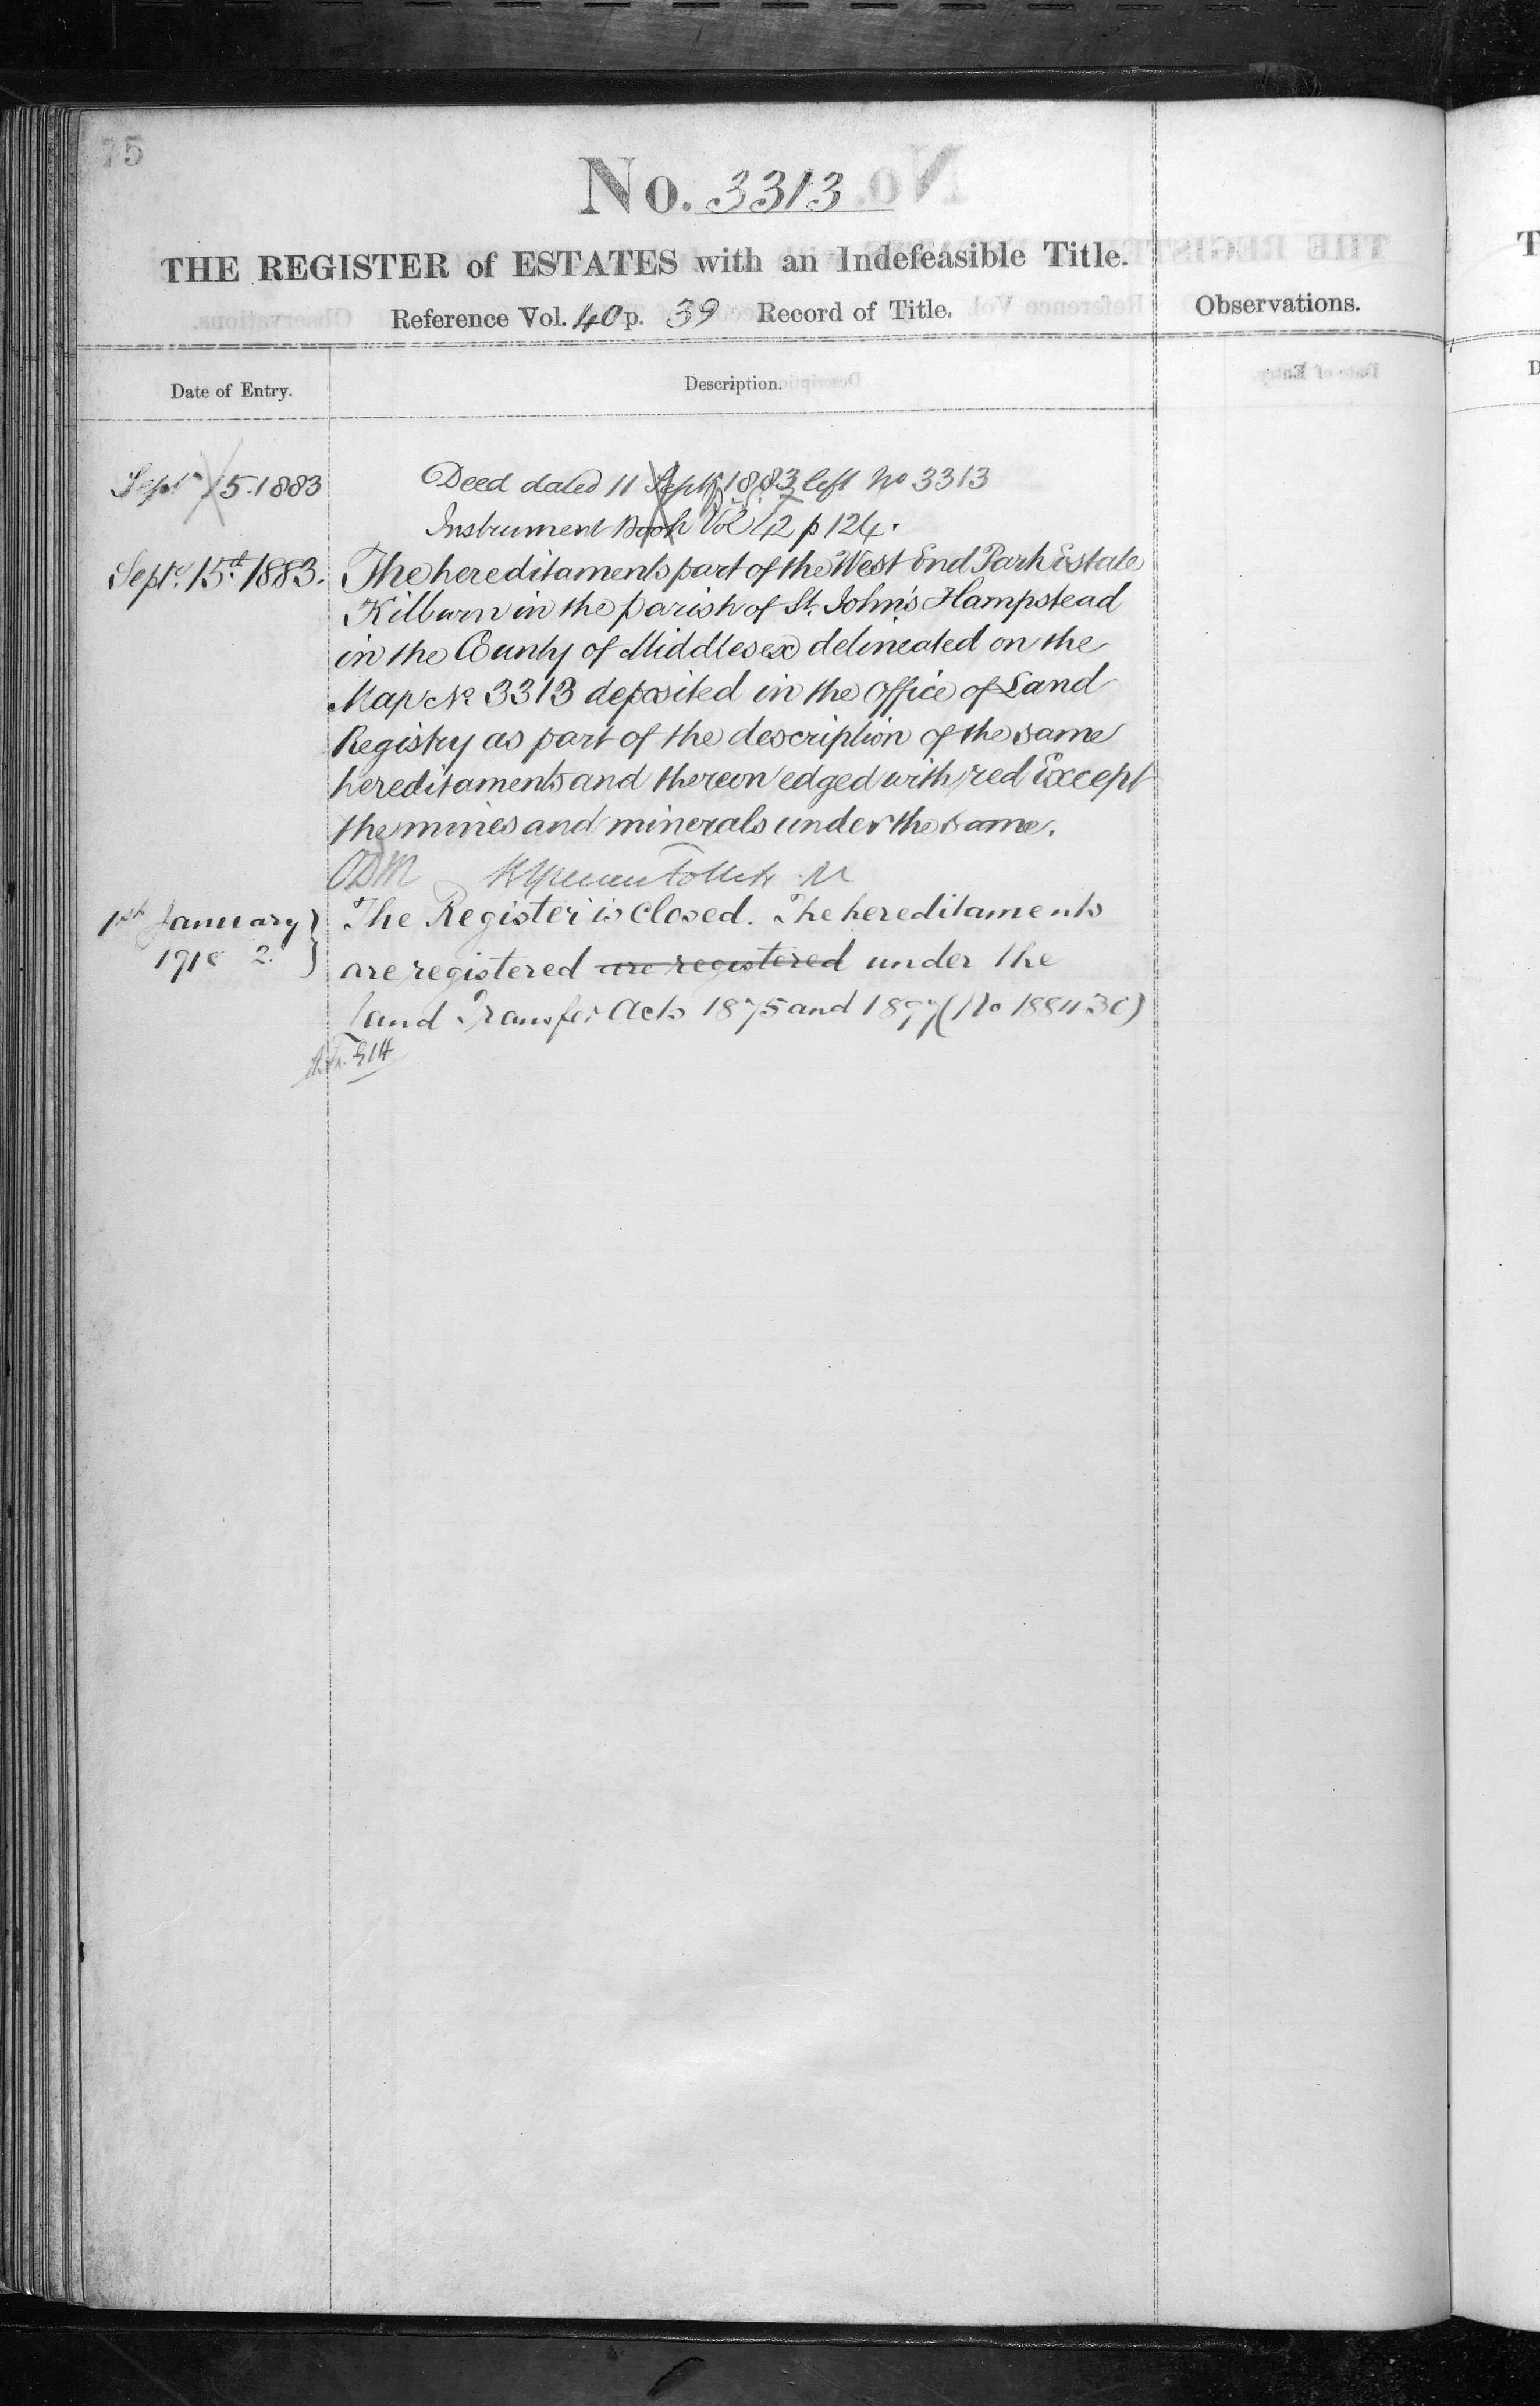 75
No. 3313
THE REGISTER of ESTATES with an Indefeasible Title.
Reference Vol. 40 p. 39 Record of Title.
Observations.
Date of Entry.
Description.
Sept 15. 1883
Deed dated 11 Sept 1883 left No 3313
Instrument Book Vol 42 p 124.
Sept. 15th 1883.
The hereditaments part of the West End Park Estate
Kilburn in the parish of St. John's Hampstead
in the County of Middlesex delineated on the
Map No. 3313 deposited in the Office of Land
Registry as part of the description of the same
hereditaments and thereon edged with red Except
the mines and minerals under the same.
1st January
The Register is closed. The hereditaments
are registered are registered under the
Land Transfer Acts 1875 and 1897 (No 188430)